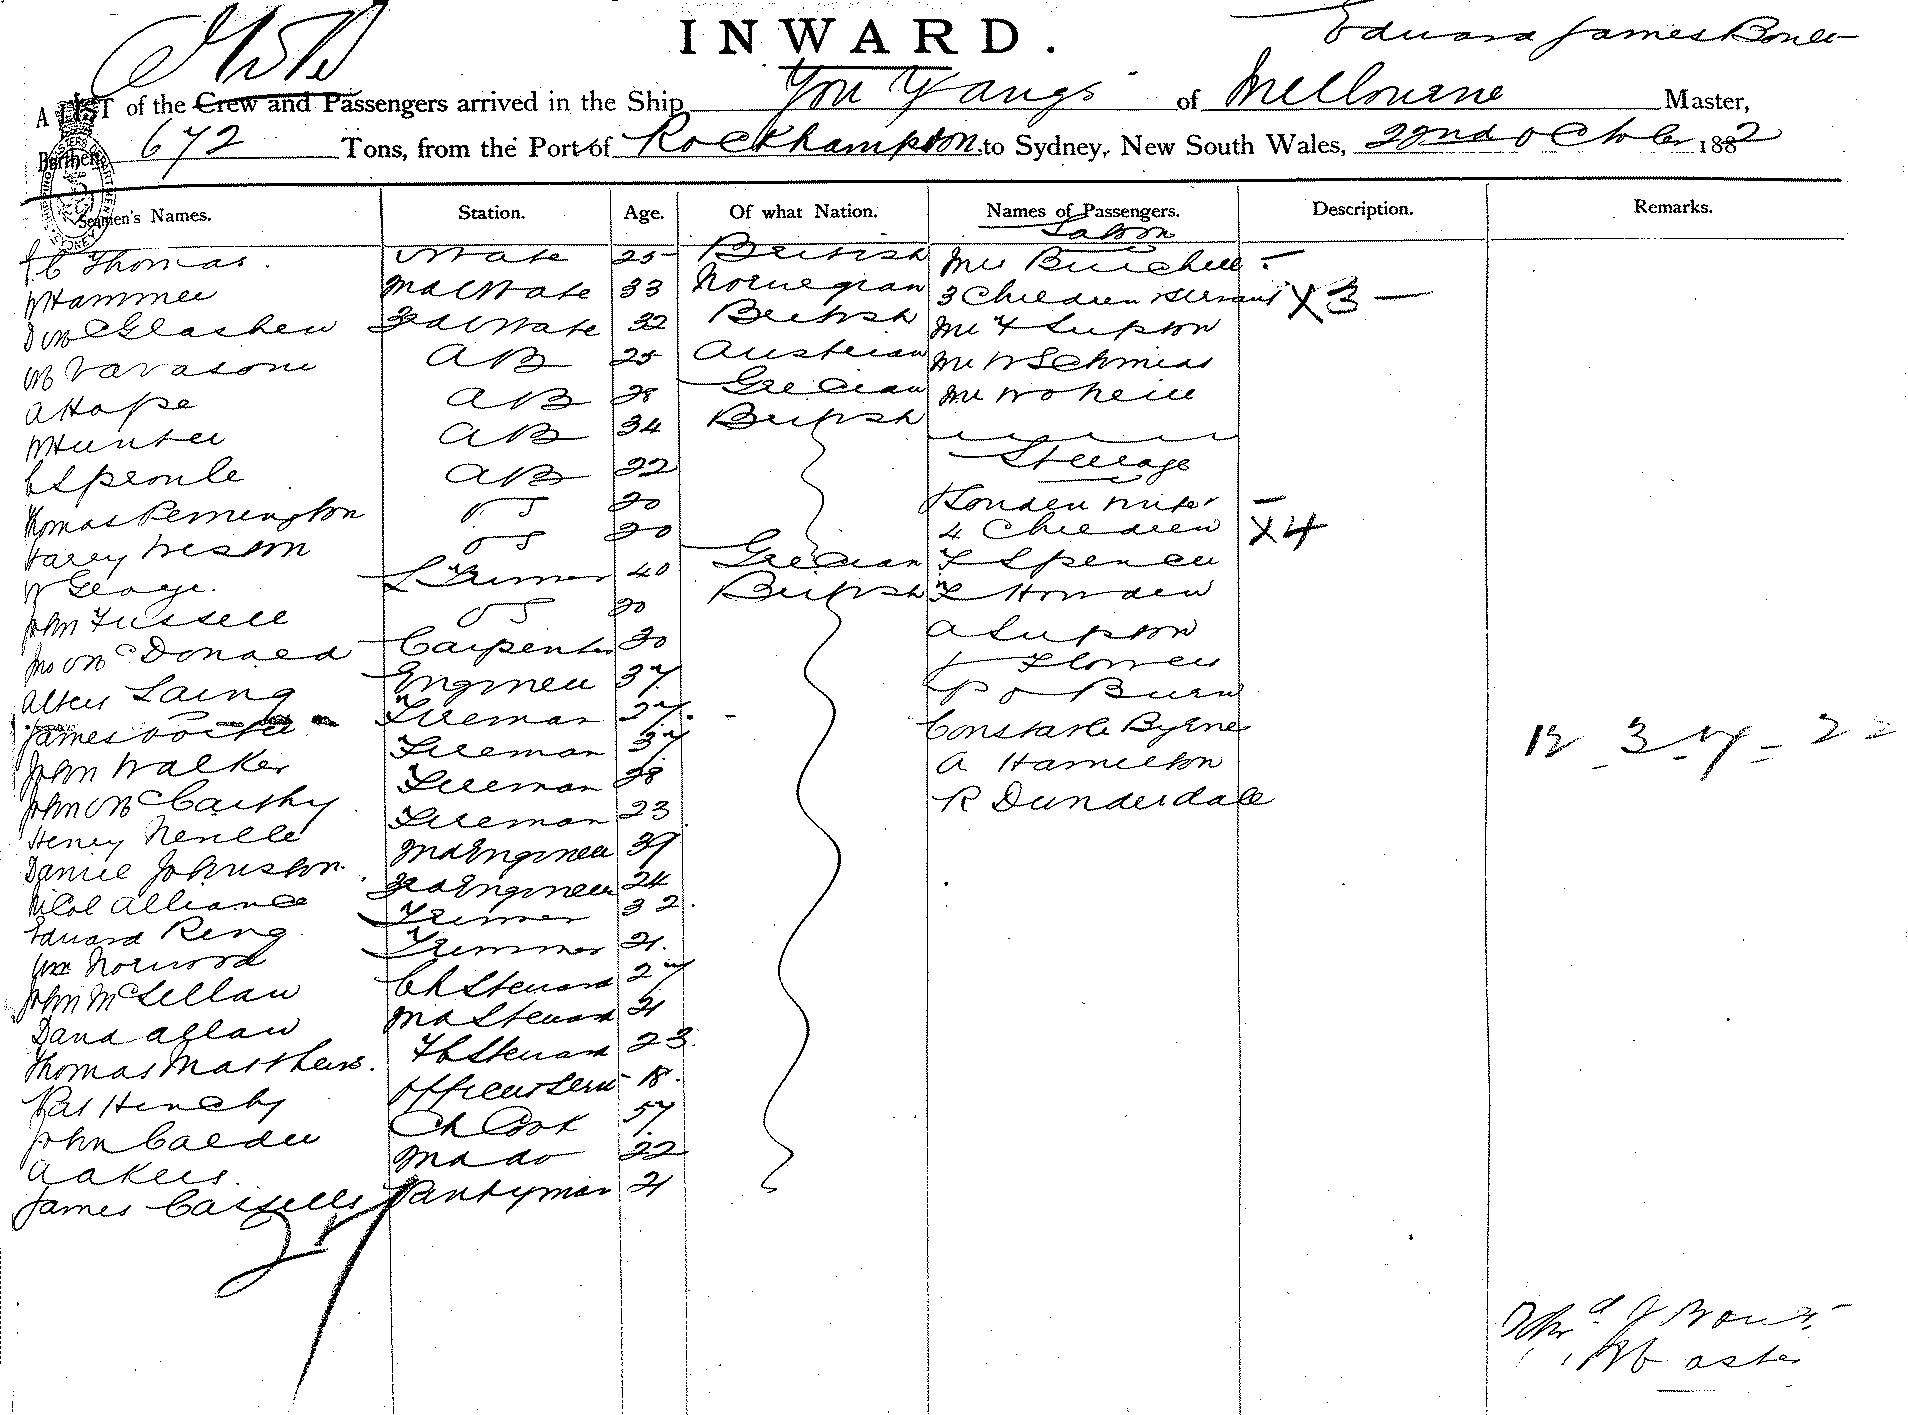 INWARD.
Edward James Boult
A LIST of the Crew and Passengers arrived in the Ship You Yangs of Melbourne Master,
Burthen 672 Tons, from the Port of Rockhampton to Sydney, New South Wales, 22nd October 1882
Seamen's Names. Station. Age. Of what Nation. Names of Passengers. Description. Remarks.
Saloon
C Thomas. Mate 25 British Mrs Burchell -
Hammer 2nd Mate 33 Norwegian 3 Children & Servant X 3 -
D McGlashen 3rd Mate 32 British Mr F Lupton
M Vavasoni AB 25 Austrian Mr W Schmidt
A Hope AB 28 Grecian Mr W O Neill
W Hunter AB 34 British
C Sproule AB 22 Steerage
Thomas Remington OS 20
Harry Weston OS 20 4 Children X4
W George. L Trimmer 40 Grecian F Spencer
John Fussell OS 20 British F Howden
Jno McDonald Carpenter 30 A Lupton
Albert Laing Engineer 37 J Flower
James Fireman 27 P O Burn
John Walker Fireman 37 Constable Byrne 12 3 - 7 - 22
John McCarthy Fireman 28 A Hamilton
Henry Neville Fireman 23 R Dunderdale
Daniel Johnston 2nd Engineer 39
Nicol Alliance 3rd Engineer 24
Edward Ring Trimmer 32.
Wm Norwood Trimmer 21.
John McLellan Ch Steward 27
David Allan 2nd Steward 21
Thomas Matthews. F C Steward 23
Pat Hinchy Officers Servt 18.
John Calder Ch Cook 57
A Akers. 2nd do 22
James Cassells Pantryman 21
Master